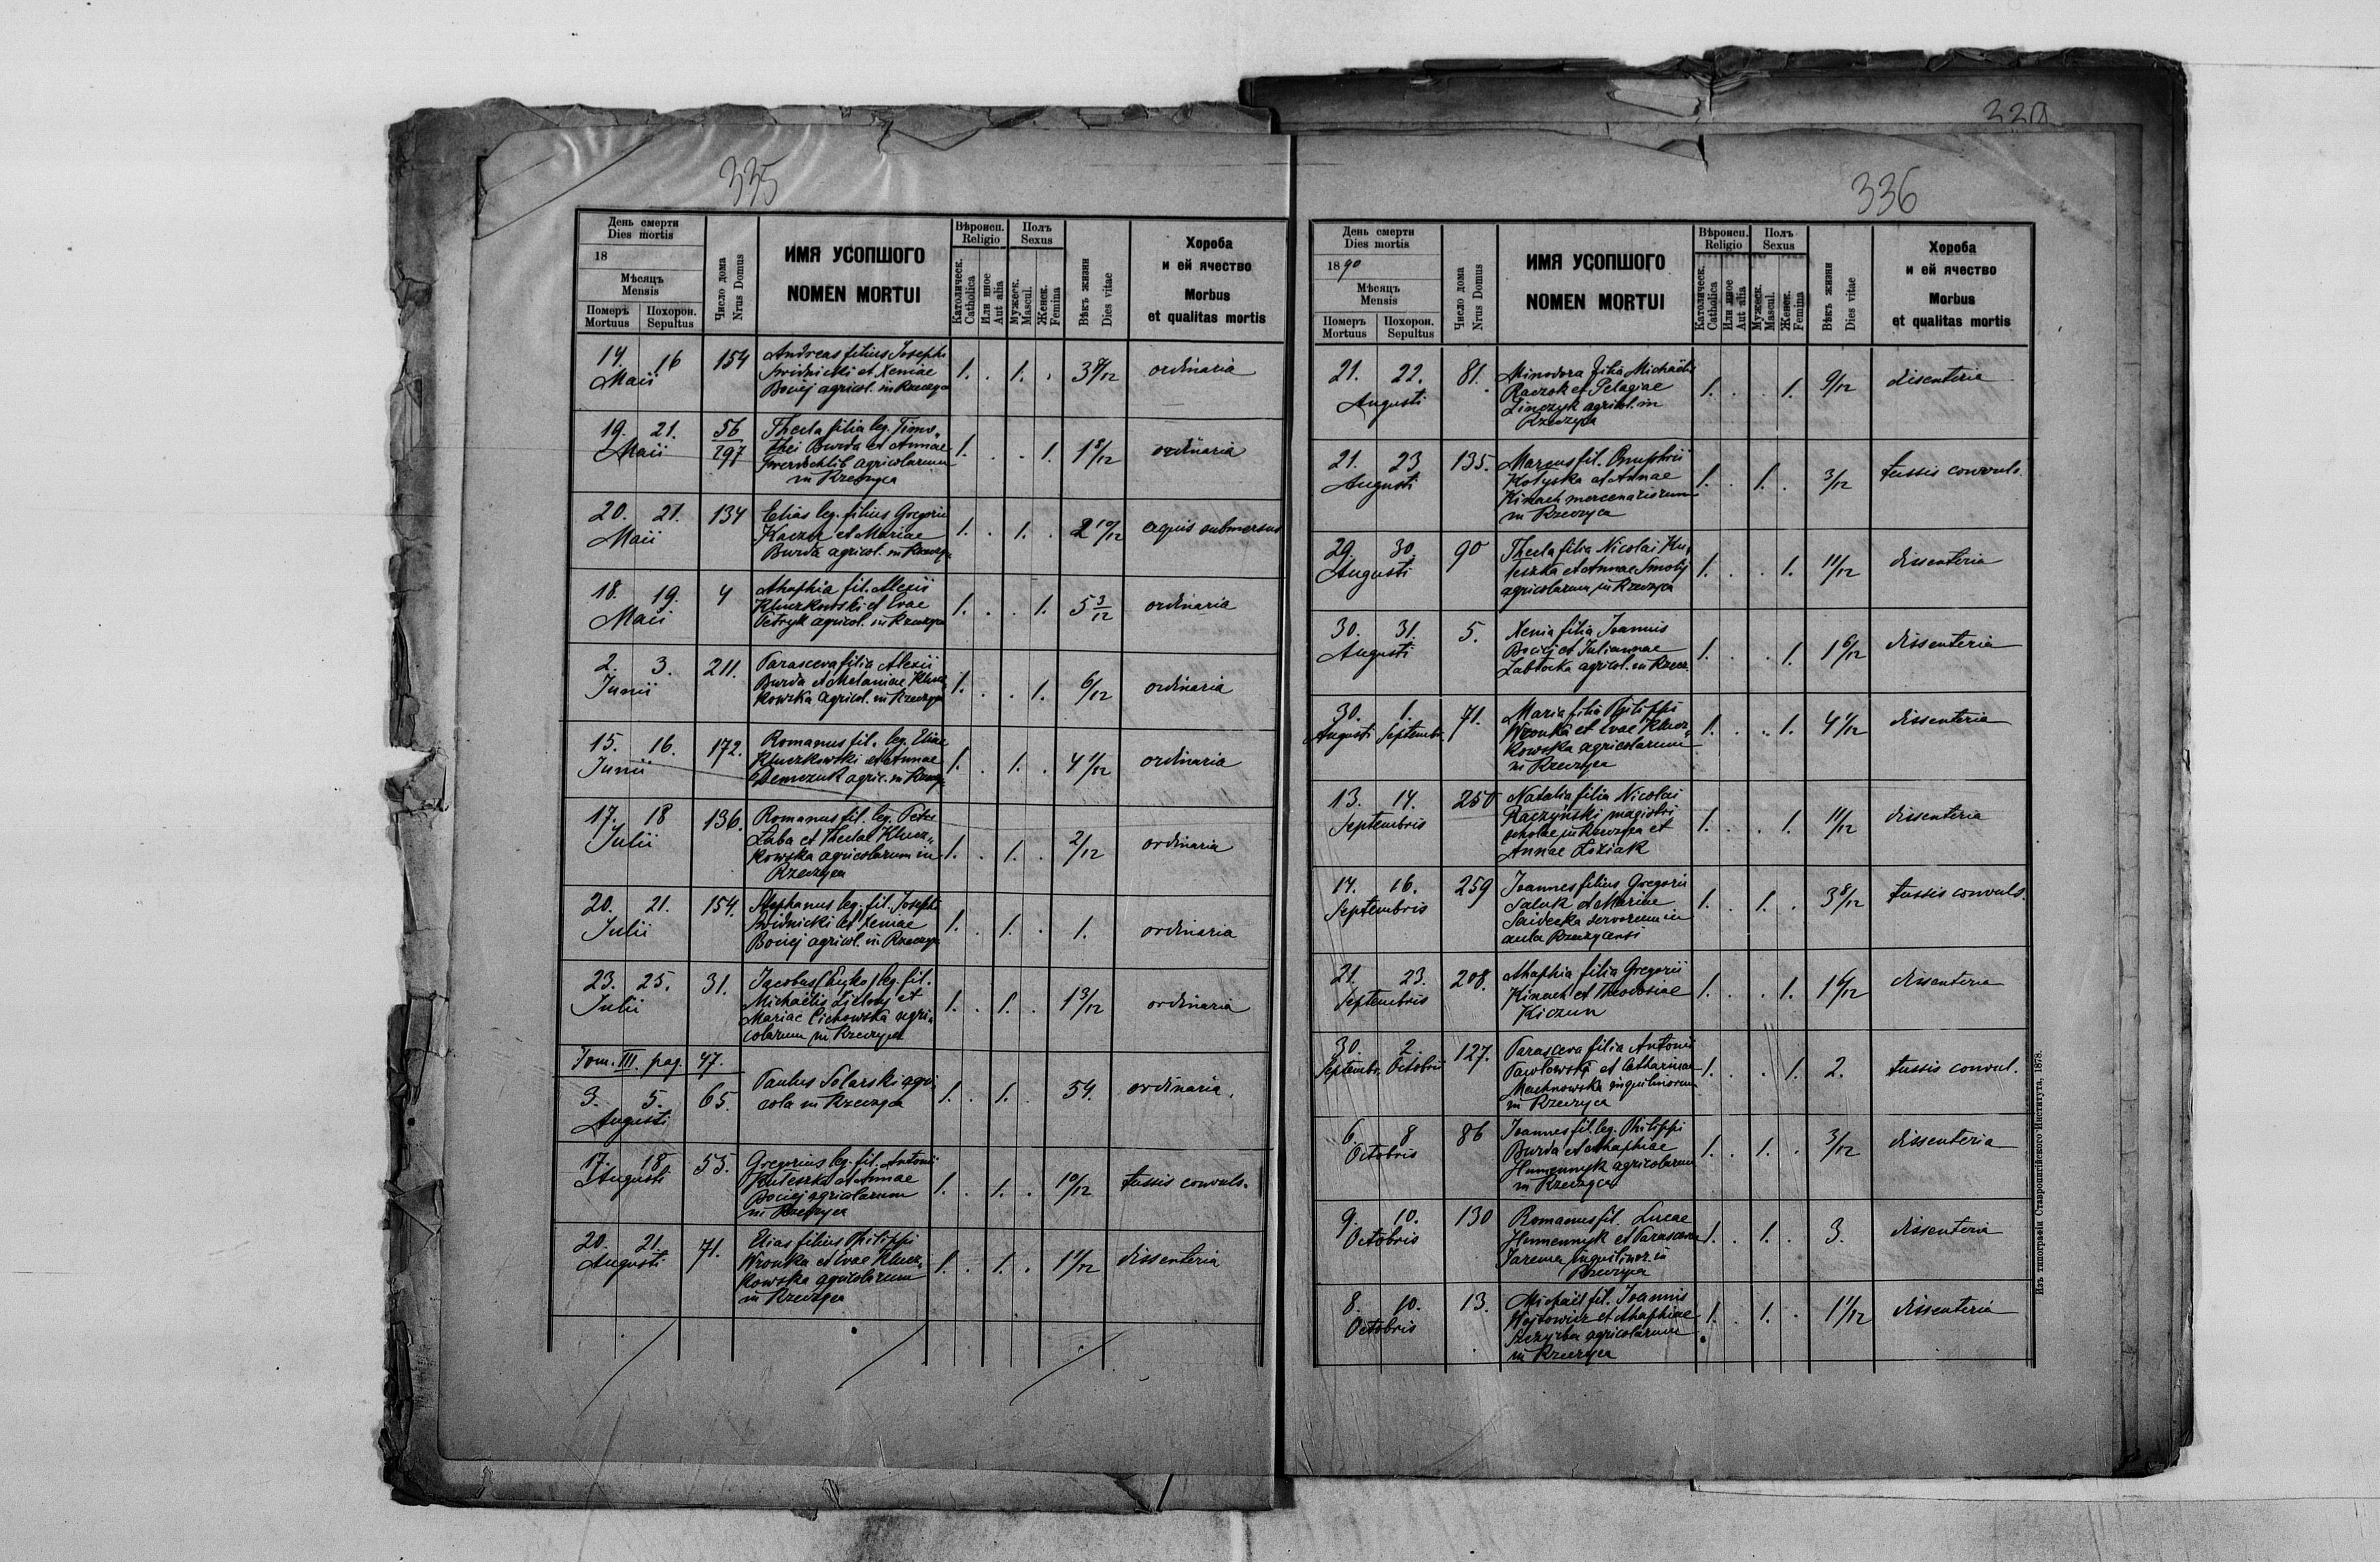 335
День смерти
Dies mortis
18
Мѣсяцъ
Mensis
Померъ Похорон.
Mortuus Sepultus
Число дома
Nrus Domus
ИМЯ УСОПШОГО
NOMEN MORTUI
Вѣроисп.
Religio
Католическ.
Catholica
Или иное
Aut alia
Полъ
Sexus
Мужеск.
Mascul.
Женск.
Femina
Вѣкъ жизни
Dies vitae
Хороба
и ей ячество
Morbus
et qualitas mortis
14. 16 Maii 154 Andreas filius Josephi
Swidnicki et Xeniae
Bociej agricol. in Rzeczyca
1. . 1. . ordinaria
19. 21. Maii 56/297 Thecla filia leg. Timo„
thei Burda et Annae
agricolarum
in Rzeczyca
1. . . 1. 1 8/12 ordinaria
20. 21. Maii 134 Elias leg. filius Gregorii
et Mariae
Burda agricol. in Rzeczyca
1. . 1. . 2 10/12 aquis submersus
18. 19. Maii 4 Ahaphia fil. Alexii
Kluczkowski et Evae
Petryk agricol. in Rzeczyca
1. . . 1. 5 3/12 ordinaria
2. 3. Junii 211. Parasceva filia Alexii
Burda et Melaniae Klucz„
kowska agricol. in Rzeczyca
1. . . 1. 6/12 ordinaria
15. 16. Junii 172. Romanus fil. leg. Eliae
Kluczkowski et Annae
Demczuk agric. in Rzeczyca
1. . 1. . 4 1/12 ordinaria
17. 18 Julii 136. Romanus fil. leg. Petri
Łaba et Theclae Klucz„
kowska agricolarum in
Rzeczyca
1. . 1. . 2/12 ordinaria
20. 21. Julii 154. Stephanus leg. fil. Josephi
Swidnicki et Xeniae
Bociej agricol. in Rzeczyca
1. . 1. . 1. ordinaria
23. 25. Julii 31. Jacobus leg. fil.
Michaëlis et
Mariae Cichowska agri„
colarum in Rzeczyca
1. . 1. . 1 3/12 ordinaria
Tom. III. pag. 47.
3. 5. Augusti 65. Paulus Solarski agri
cola in Rzeczyca
1. . 1. . 54. ordinaria.
17. 18. Augusti 55. Gregorius leg. fil. Antonii
Kuleszka et Annae
Bociej agricolarum
in Rzeczyca
1. . 1. . 10/12 tussis convuls.
20. 21. Augusti 71. Elias filius Philippi
Wronka et Evae Klucz„
kowska agricolarum
in Rzeczyca
1. . 1. . dissenteria
336
День смерти
Dies mortis
1890
Мѣсяцъ
Mensis
Померъ Похорон.
Mortuus Sepultus
Число дома
Nrus Domus
ИМЯ УСОПШОГО
NOMEN MORTUI
Вѣроисп.
Religio
Католическ.
Catholica
Или иное
Aut alia
Полъ
Sexus
Мужеск.
Mascul.
Женск.
Femina
Вѣкъ жизни
Dies vitae
Хороба
и ей ячество
Morbus
et qualitas mortis
21. 22. Augusti 81. Minodora filia Michaëlis
Raczok et Pelagiae
Linczyk agricol. in
Rzeczyca
1. . . 1. 9/12 disenteria
21. 23 Augusti 135. Marcus fil. Onuphrii
Kołyska et Annae
Kinach mercenariorum
in Rzeczyca
1. . 1. . 3/12 tussis convuls.
29. 30. Augusti 90 Thecla filia Nicolai Ku„
leszka et Annae Smolij
agricolarum in Rzeczyca
1. . . 1. 11/12 dissenteria
30. 31. Augusti 5. Xenia filia Joannis
Bociej et Juliannae
agricol. in Rzecz.
1. . . 1. 1 6/12 dissenteria
30. Augusti 1. Septembr. 71. Maria filia Philippi
Wronka et Evae Klucz„
kowska agricolarum
in Rzeczyca
1. . . 1. 4 1/12 dissenteria
13. 14. Septembris 250 Natalia filia Nicolai
Raczyński magistri
scholae in Rzeczyca et
Annae
1. . . 1. 11/12 dissenteria
14. 16. Septembris 259 Joannes filius Gregorii
Saluk et Mariae
servorum in
aula Rzeczycensi
1. . 1. . 3 8/12 tussis convuls.
21. 23. Septembris 208. Ahaphia filia Gregorii
Kinach et Theodosiae
Kiczun
1. . . 1. 1 6/12 dissenteria
30. Septembr. 2. Octobris 127. Parasceva filia Antonii
Pawłowski et Catharinae
Machnowska inquilinorum
in Rzeczyca
1. . . 1. 2. tussis convul.
6. 8 Octobris 86 Joannes fil. leg. Philippi
Burda et Ahaphiae
Humennyk agricolarum
in Rzeczyca
1. . 1. . 3/12 dissenteria
9. 10. Octobris 130 Romanus fil. Lucae
Humennyk et Parascevae
Jarema inquilinor. in
Rzeczyca
1. . 1. . 3. dissenteria
8. 10. Octobris 13. Michaël fil. Joannis
Wojtowicz et Ahaphiae
Szczyrba agricolarum
in Rzeczyca
1. . 1. . 1 1/12 dissenteria
Изъ типографіи Ставропигійского Института, 1878.